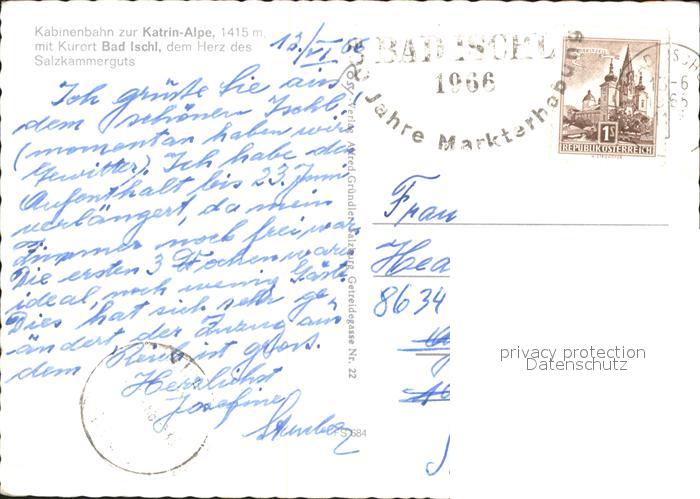 Kabinenbahn zur Katrin-Alpe, 1415 m,
mit Kurort Bad Ischl, dem Herz des
Salzkammerguts
13/VI 66
Ich grüße Sie aus
dem schönen Ischl
(momentan haben wir
Gewitter). Ich habe den
Aufenthalt bis 23. Juni
verlängert, da mein
Zimmer noch frei war.
Die ersten 3 Wochen waren
ideal, noch wenig Gäste
Dies hat sich sehr ge-
ändert, der Zuzug aus
dem Reich ist gross.
Herzlichst
Josefine
Verlag Alfred Gründler, Salzburg, Getreidegasse Nr. 22
684
BAD ISCHL
1966
500 Jahre Markterhebung
1 S
REPUBLIK ÖSTERREICH
Frau
8634
privacy protection
Datenschutz